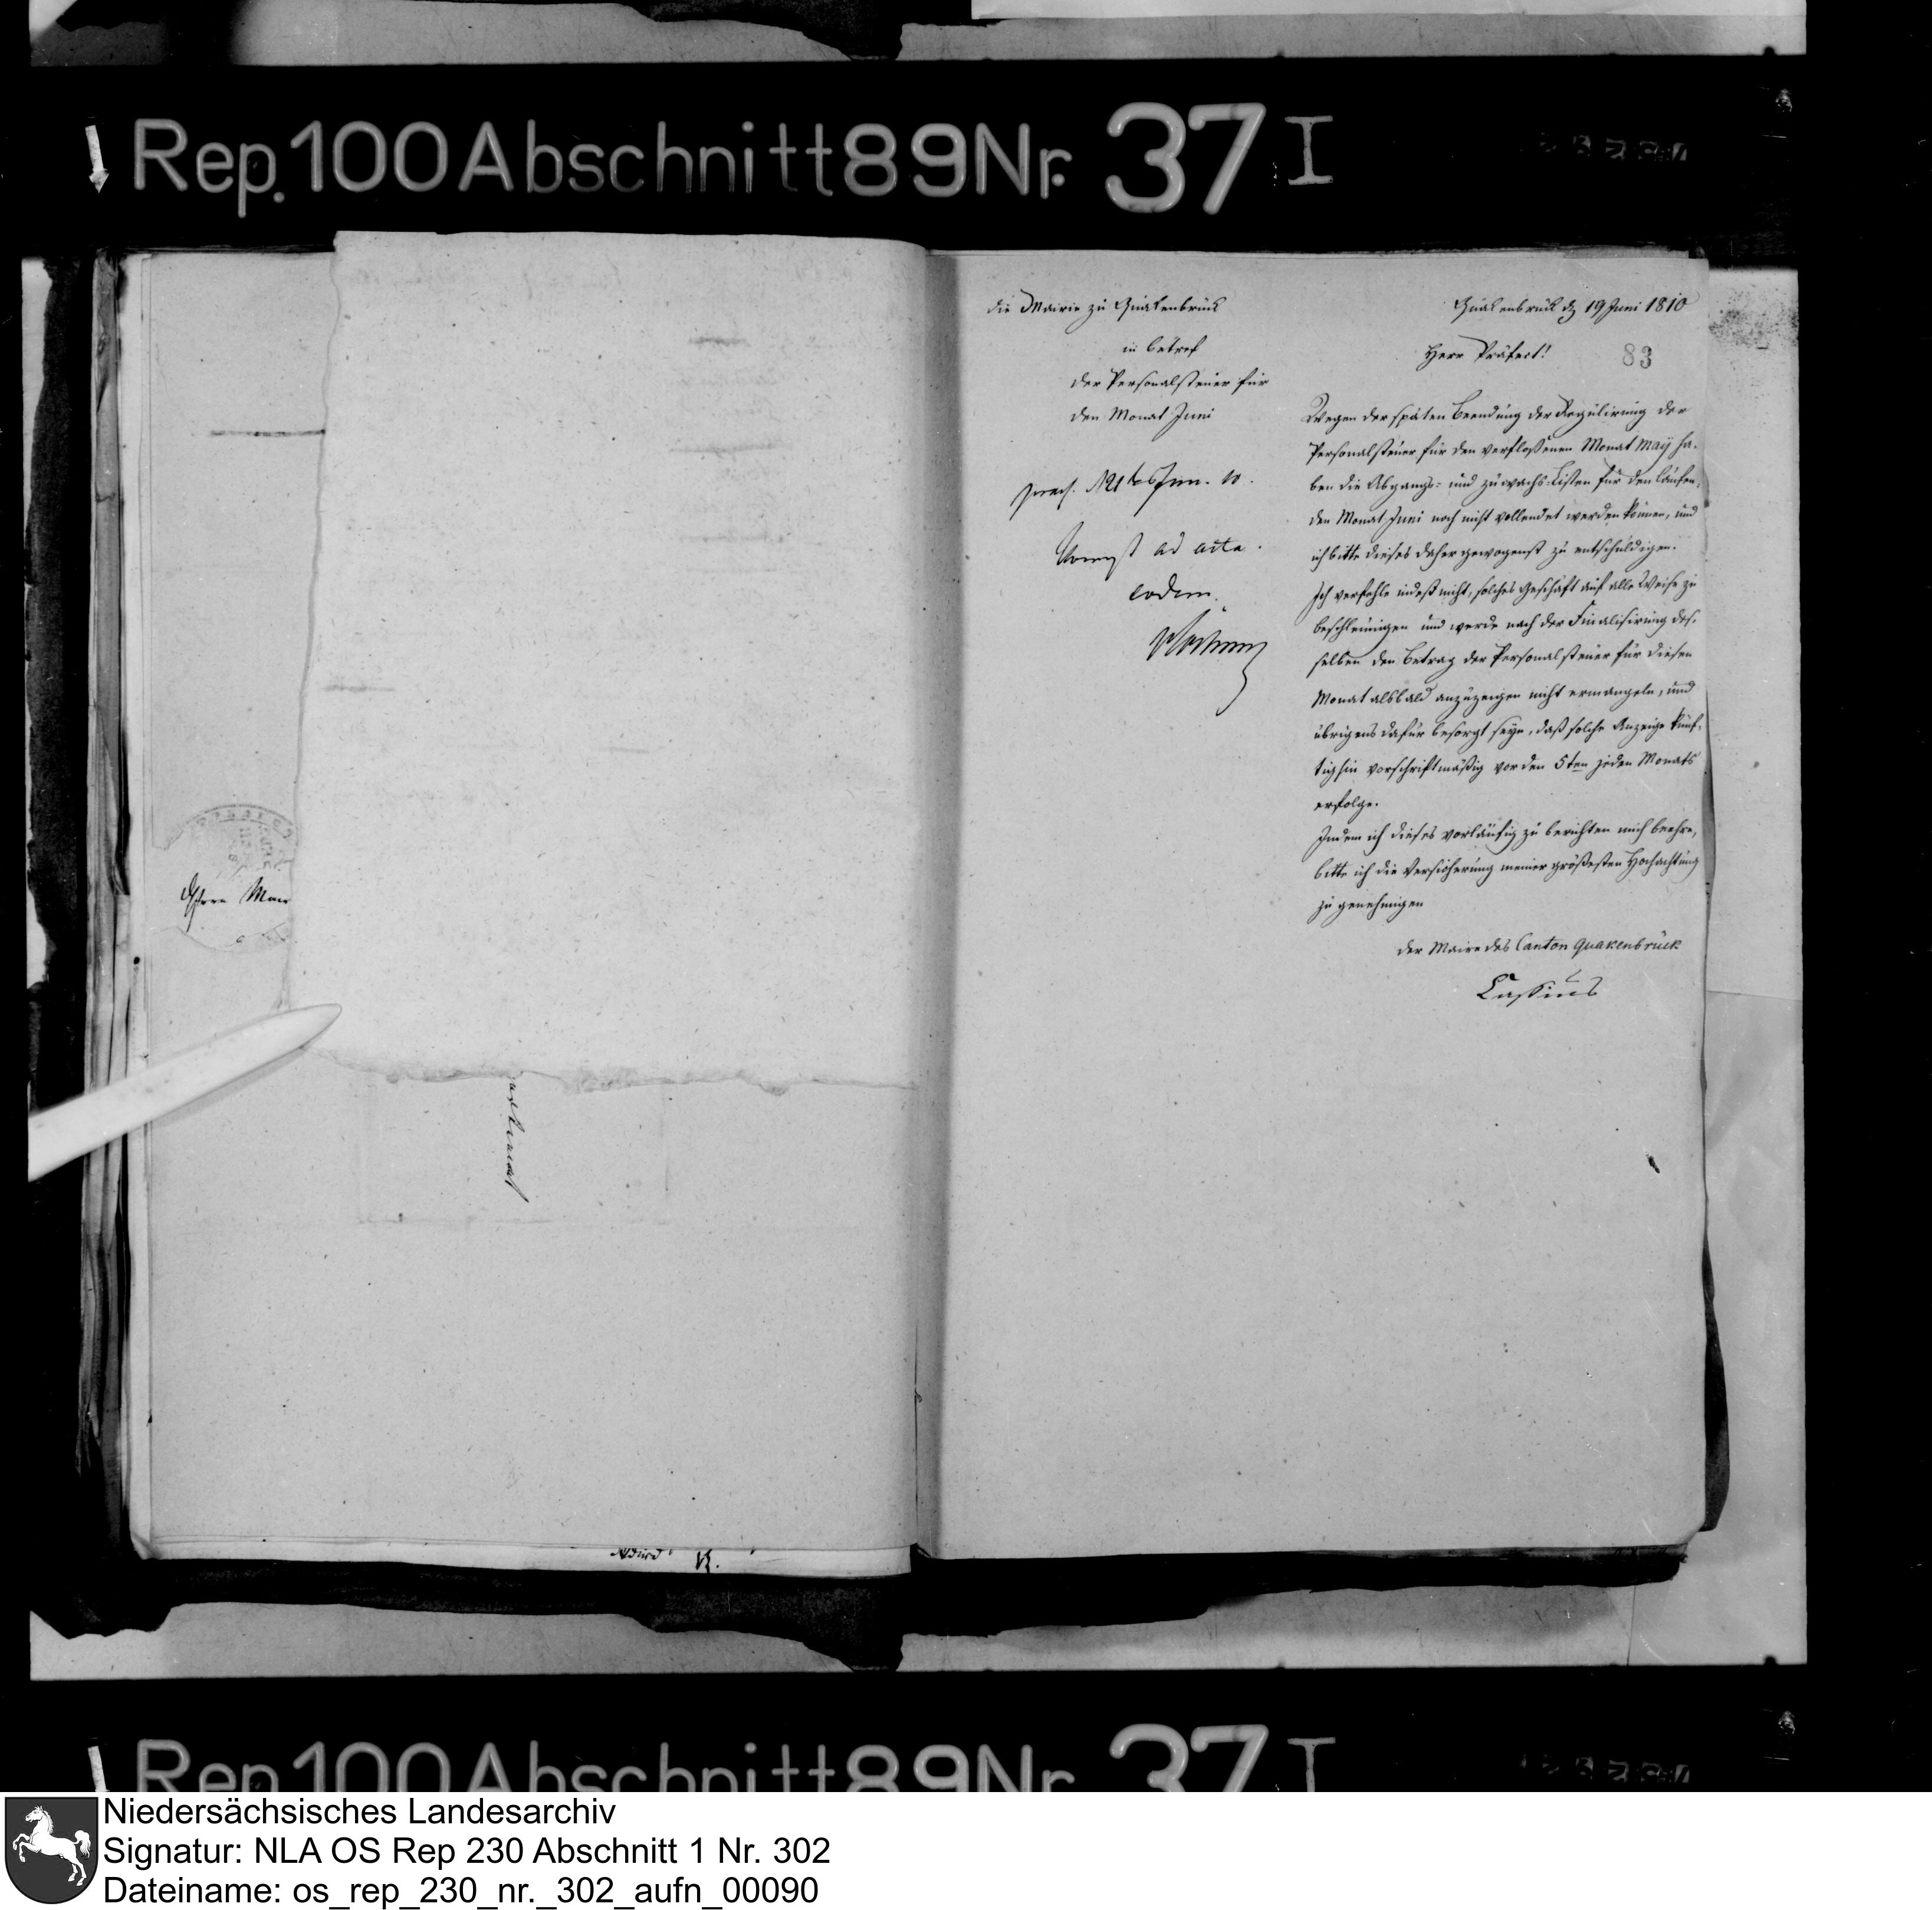 Rep. 100 Abschnitt 89 Nr. 37 I
Herrn Mair
die Mairie zu Quakenbrück
in betref
der Personalsteuer für
den Monat Juni
praes. 21 Jun. 10.
ad acta.
eodem.
Quakenbrück d 19 Juni 1810
Herr Präfect!
83
Wegen der späten Beendung der Regulirung der
Personalsteuer für den verfloßenen Monat May ha-
ben die Abgangs- und Zuwachs-Listen für den laufen-
den Monat Juni noch nicht vollendet werden können, und
ich bitte dieses daher gewogenst zu entschuldigen.
Ich verfehle indeß nicht, solches Geschäft auf alle Weise zu
beschleunigen und werde nach der Finalisirung des-
selben den Betrag der Personalsteuer für diesen
Monat alsbald anzuzeigen nicht ermangeln, und
übrigens dafür besorgt seyn, daß solche Anzeige künf-
tighin vorschriftmäßig vor den 5ten jeden Monats
erfolge.
Indem ich dieses vorläufig zu berichten mich beehre,
bitte ich die Versicherung meiner größesten Hochachtung
zu genehmigen
der Maire des Canton Quakenbrück
Cassius
Rep. 100 Abschnitt 89 Nr. 37 I
Niedersächsisches Landesarchiv
Signatur: NLA OS Rep 230 Abschnitt 1 Nr. 302
Dateiname: os_rep_230_nr._302_aufn_00090